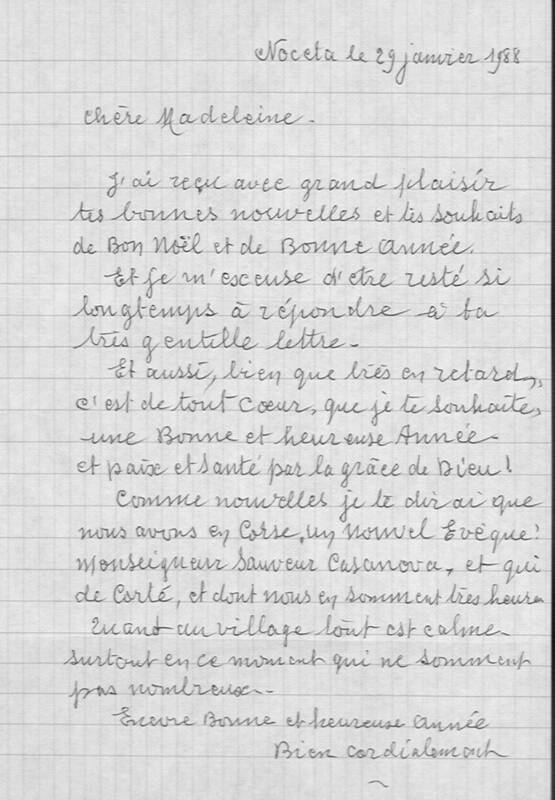 Noceta le 29 janvier 1988
chère Madeleine -
J'ai reçu avec grand plaisir
tes bonnes nouvelles et tes souhaits
de Bon Noël et de Bonne année.
Et je m'excuse d'etre resté si
longtemps à répondre à ta
très gentille lettre -
Et aussi, bien que très en retard,
c'est de tout cœur, que je te souhaite,
une Bonne et heureuse Année -
et paix et santé par la grâce de Dieu !
Comme nouvelles je te dirai que
nous avons en Corse, un nouvel Evêque !
Monseigneur Sauveur Casanova, et qui
de Corté, et dont nous en somment très heureux
Quant au village tout est calme
surtout en ce moment qui ne somment
pas nombreux -
Encore Bonne et heureuse année
Bien cordialement